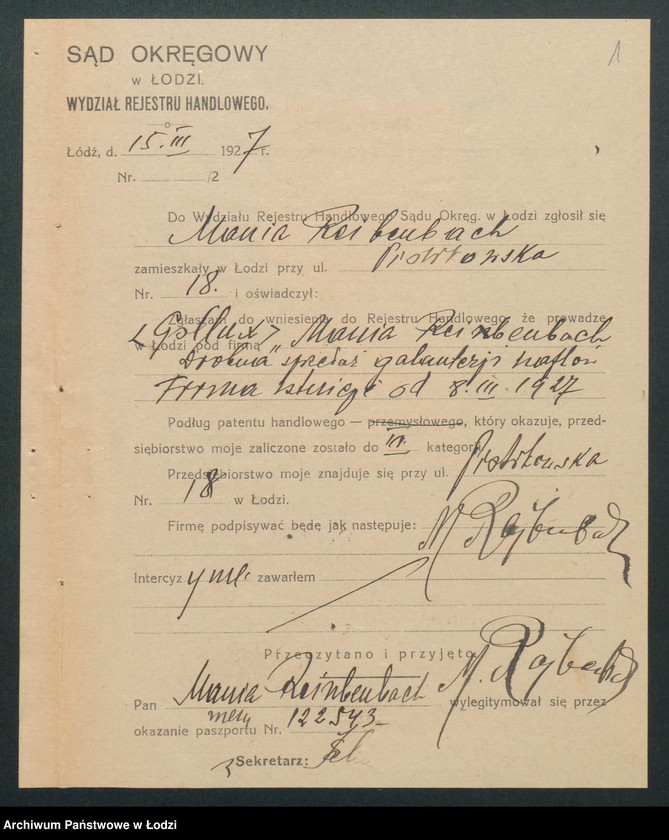 1
SĄD OKRĘGOWY
w ŁODZI.
WYDZIAŁ REJESTRU HANDLOWEGO.
Łódź, d. 15.III 1927 r.
Nr. /2
Do Wydziału Rejestru Handlowego Sądu Okręg. w Łodzi zgłosił się
Mania Reibenbach
zamieszkały w Łodzi przy ul. Piotrkowska
Nr. 18. i oświadczył:
Zgłaszam do wniesienia do Rejestru Handlowego, że prowadzę
w Łodzi pod firmą Mania Reinbenbach
Drobna sprzedaż galanterji
Firma istnieje od 8.III.1927
Podług patentu handlowego — przemysłowego, który okazuje, przed-
siębiorstwo moje zaliczone zostało do kategorji
Przedsiębiorstwo moje znajduje się przy ul. Piotrkowska
Nr. 18 w Łodzi.
Firmę podpisywać będę jak następuje: M Rajbenbach
Intercyzy nie zawarłem
Przeczytano i przyjęto
M. Rajbenbach
Pan Mania Reinbenbach wylegitymował się przez
okazanie paszportu Nr. 122543
Sekretarz:
Archiwum Państwowe w Łodzi